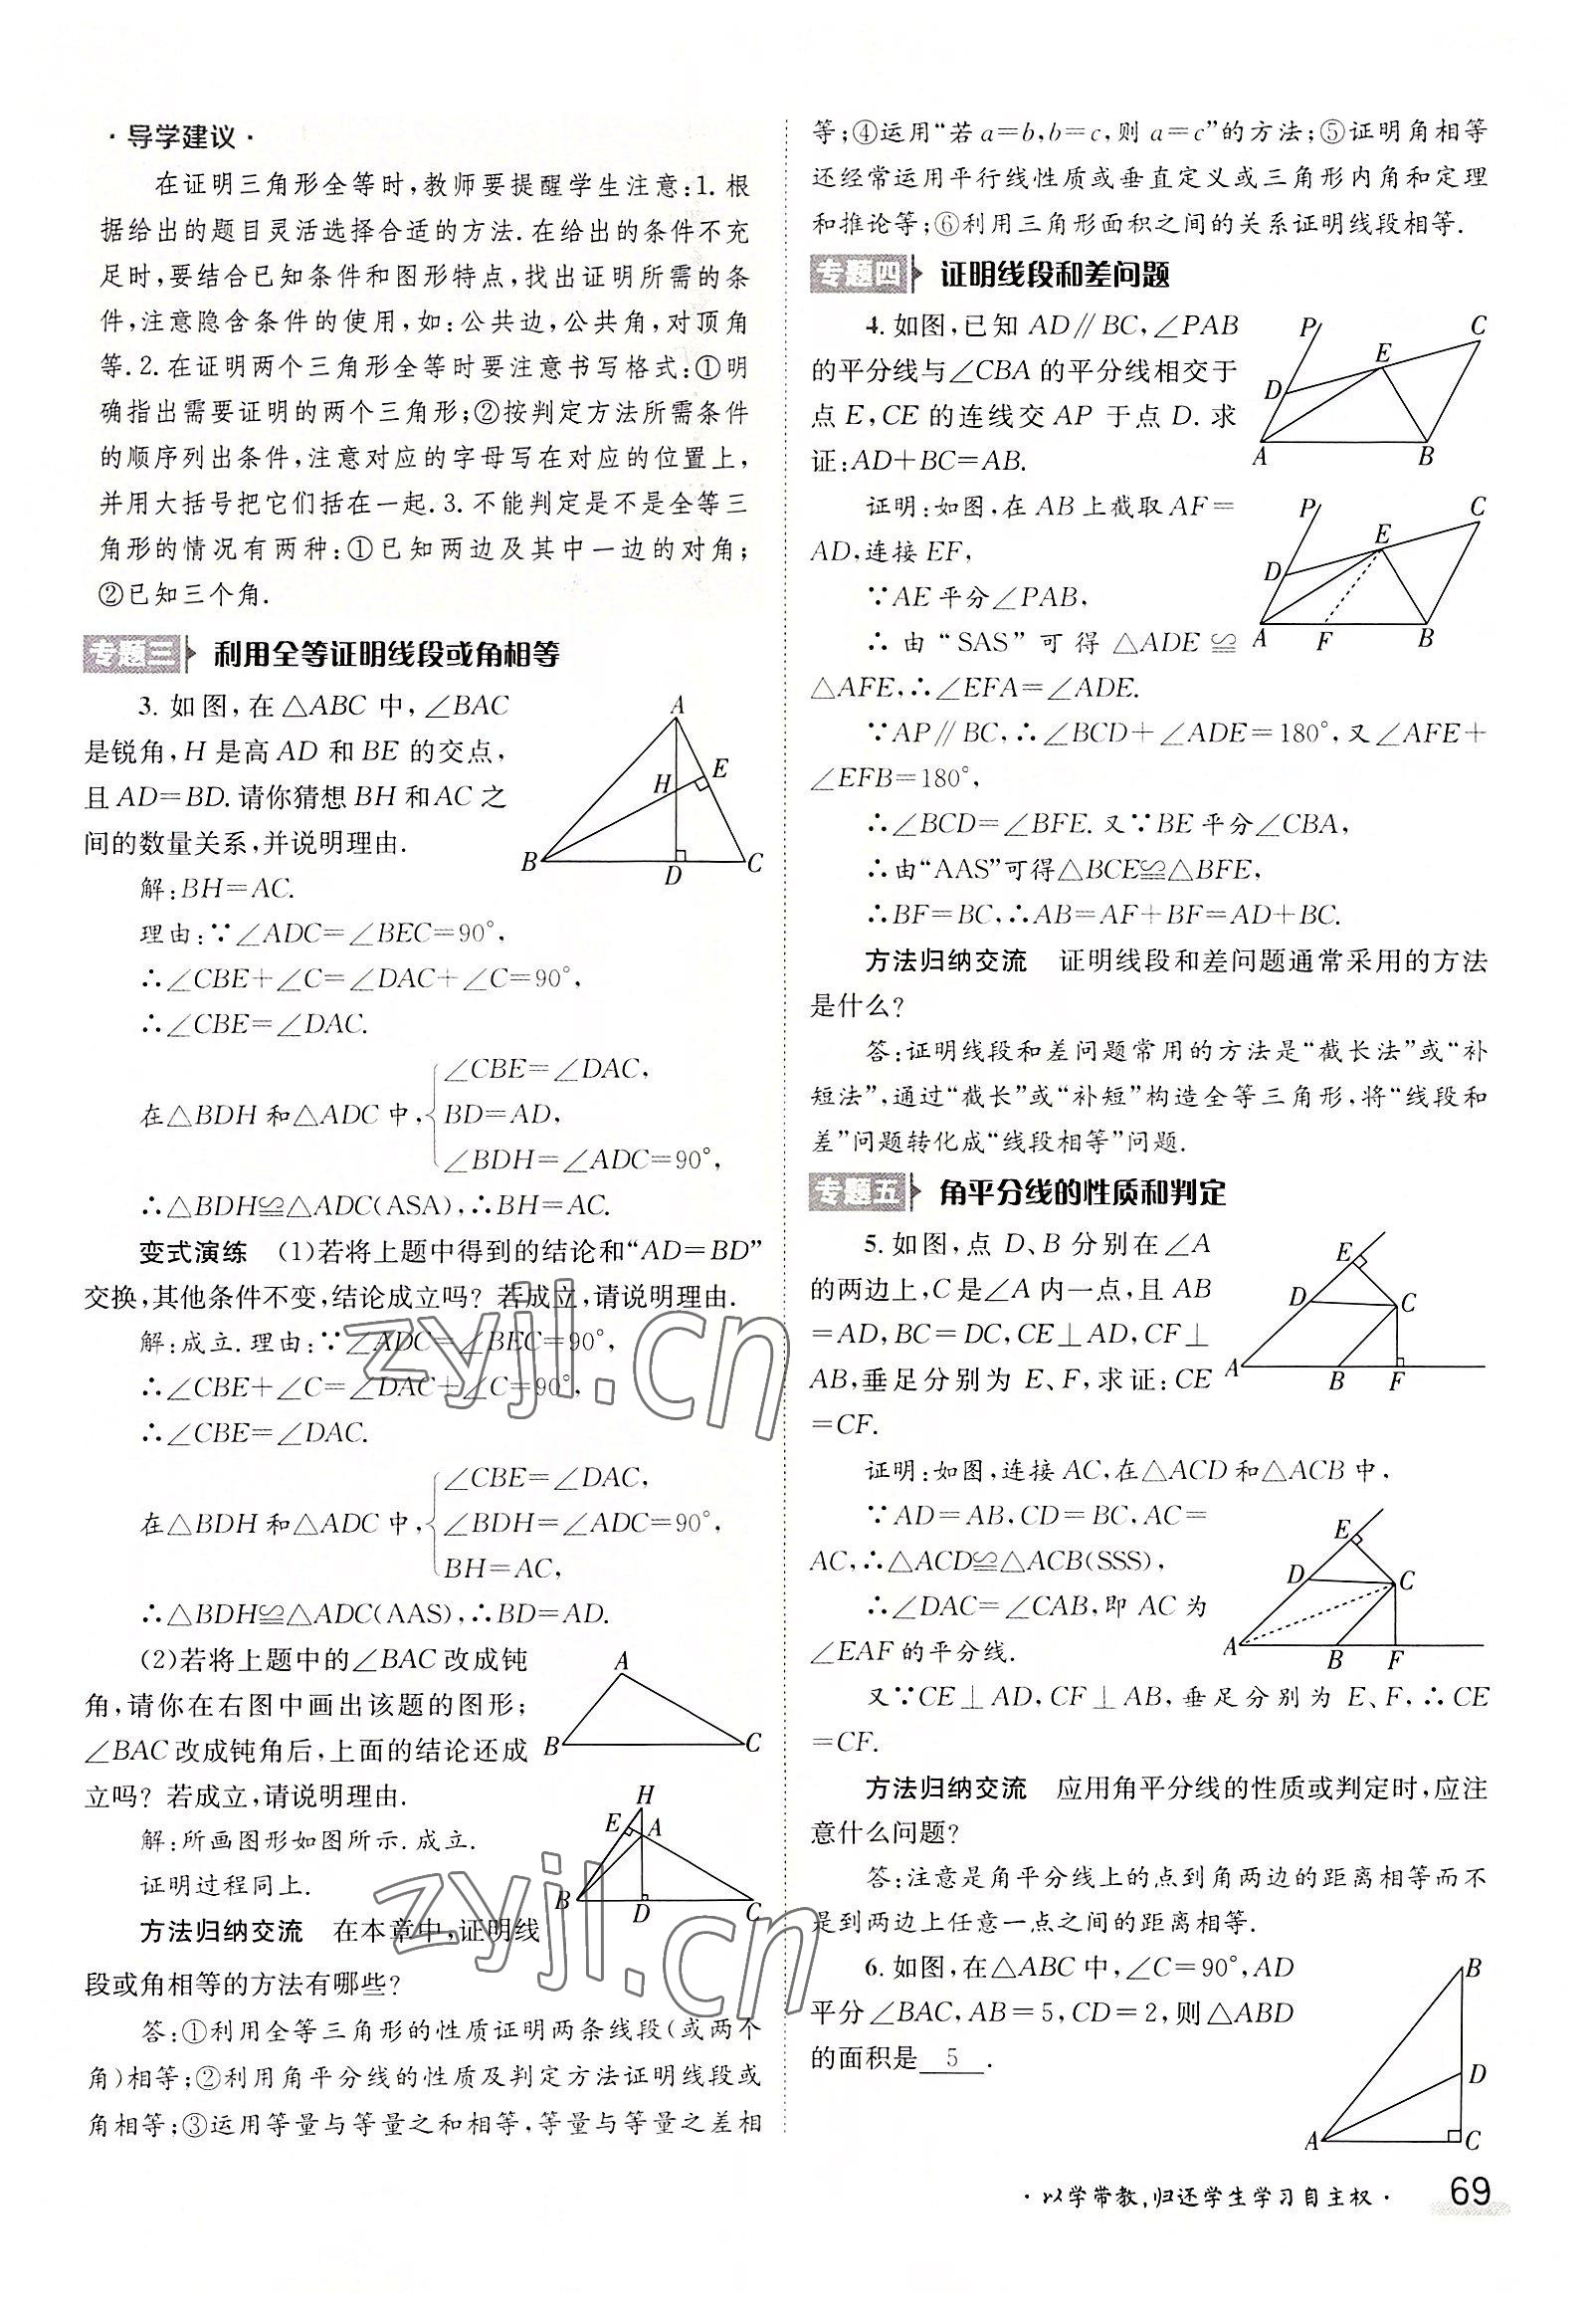 · 导学建议 ·
在证明三角形全等时,教师要提醒学生注意:1.根
据给出的题目灵活选择合适的方法.在给出的条件不充
足时,要结合已知条件和图形特点,找出证明所需的条
件,注意隐含条件的使用,如:公共边,公共角,对顶角
等.2.在证明两个三角形全等时要注意书写格式:①明
确指出需要证明的两个三角形;②按判定方法所需条件
的顺序列出条件,注意对应的字母写在对应的位置上,
并用大括号把它们括在一起.3.不能判定是不是全等三
角形的情况有两种:①已知两边及其中一边的对角;
②已知三个角.
专题三 利用全等证明线段或角相等
3. 如图,在△ABC 中,∠BAC
是锐角,H 是高 AD 和 BE 的交点,
且AD=BD.请你猜想BH和AC之
间的数量关系,并说明理由.
A
H
E
B
D
C
解:BH=AC.
理由:∵∠ADC=∠BEC=90°,
∴∠CBE+∠C=∠DAC+∠C=90°,
∴∠CBE=∠DAC.
∠CBE=∠DAC,
在△BDH和△ADC中, BD=AD,
∠BDH=∠ADC=90°,
∴△BDH≌△ADC(ASA),∴BH=AC.
变式演练 (1)若将上题中得到的结论和“AD=BD”
交换,其他条件不变,结论成立吗? 若成立,请说明理由.
解:成立.理由:∵∠ADC=∠BEC=90°,
∴∠CBE+∠C=∠DAC+∠C=90°,
∴∠CBE=∠DAC.
∠CBE=∠DAC,
在△BDH和△ADC中, ∠BDH=∠ADC=90°,
BH=AC,
∴△BDH≌△ADC(AAS),∴BD=AD.
(2)若将上题中的∠BAC改成钝
角,请你在右图中画出该题的图形;
∠BAC改成钝角后,上面的结论还成
立吗? 若成立,请说明理由.
A
B
C
解:所画图形如图所示.成立.
证明过程同上.
H
E
A
B
D
C
方法归纳交流 在本章中,证明线
段或角相等的方法有哪些?
答:①利用全等三角形的性质证明两条线段(或两个
角)相等;②利用角平分线的性质及判定方法证明线段或
角相等;③运用等量与等量之和相等,等量与等量之差相
等;④运用“若a=b,b=c,则a=c”的方法;⑤证明角相等
还经常运用平行线性质或垂直定义或三角形内角和定理
和推论等;⑥利用三角形面积之间的关系证明线段相等.
专题四 证明线段和差问题
4.如图,已知AD∥BC,∠PAB
的平分线与∠CBA的平分线相交于
点E,CE的连线交AP于点D.求
证:AD+BC=AB.
P
E
C
D
A
B
证明:如图,在AB上截取AF=
AD,连接EF,
∵AE平分∠PAB,
∴由“SAS”可得△ADE≌
△AFE,∴∠EFA=∠ADE.
P
E
C
D
A
F
B
∵AP∥BC,∴∠BCD+∠ADE=180°,又∠AFE+
∠EFB=180°,
∴∠BCD=∠BFE.又∵BE平分∠CBA,
∴由“AAS”可得△BCE≌△BFE,
∴BF=BC,∴AB=AF+BF=AD+BC.
方法归纳交流 证明线段和差问题通常采用的方法
是什么?
答:证明线段和差问题常用的方法是“截长法”或“补
短法”,通过“截长”或“补短”构造全等三角形,将“线段和
差”问题转化成“线段相等”问题.
专题五 角平分线的性质和判定
5.如图,点D、B分别在∠A
的两边上,C是∠A内一点,且AB
=AD,BC=DC,CE⊥AD,CF⊥
AB,垂足分别为E、F,求证:CE
=CF.
E
D
C
A
B
F
证明:如图,连接AC,在△ACD和△ACB中,
∵AD=AB,CD=BC,AC=
AC,∴△ACD≌△ACB(SSS),
∴∠DAC=∠CAB,即AC为
∠EAF的平分线.
E
D
C
A
B
F
又∵CE⊥AD,CF⊥AB,垂足分别为E、F,∴CE
=CF.
方法归纳交流 应用角平分线的性质或判定时,应注
意什么问题?
答:注意是角平分线上的点到角两边的距离相等而不
是到两边上任意一点之间的距离相等.
6.如图,在△ABC中,∠C=90°,AD
平分∠BAC,AB=5,CD=2,则△ABD
的面积是 5 .
B
D
A
C
zyjl.cn
zyjl.cn
· 以学带教,归还学生学习自主权 ·
69